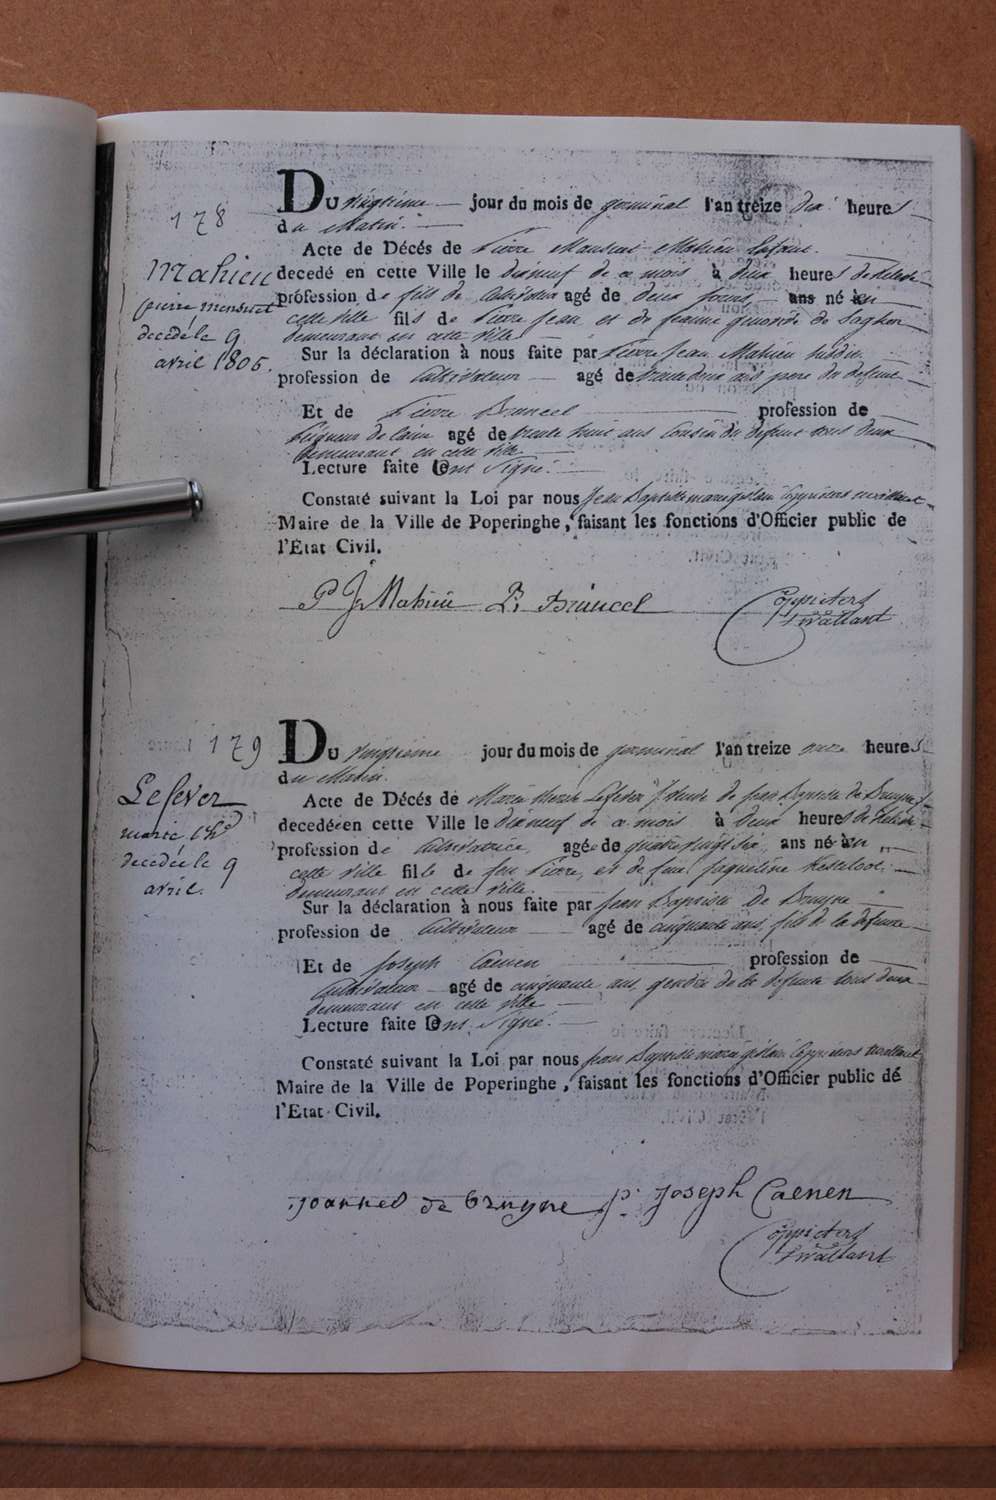 178
Du vingtieme jour du mois de germinal l'an treize dix heures
du Matin.
Mahieu
pierre mansuet
decedé le 9
avril 1805.
Acte de Décés de Pierre Mansuet Mahieu Enfant
decedé en cette Ville le dixneuf de ce mois à deux heures de relevée
profession de fils de Cultivateur agé de deux jours ans né en
cette ville fils de Pierre Jean et de jeanne de
demeurant en cette ville
Sur la déclaration à nous faite par Pierre Jean Mahieu susdit
profession de Cultivateur agé de trentedeux ans pere du defunt
Et de Pierre Bruncel profession de
agé de trente ans Cousin du defunt tous deux
demeurant en cette ville
Lecture faite ont Signé.
Constaté suivant la Loi par nous Jean Baptiste marie gislain
Maire de la Ville de Poperinghe, faisant les fonctions d'Officier public de
l'Etat Civil.
P J Mahieu P. Bruncel
179
Du vingtieme jour du mois de germinal l'an treize onze heures
du Matin.
Lefever
marie thr
decedée le 9
avril.
Acte de Décés de Marie therese Lefever Veuve de jean Baptiste de Bruyne
decedée en cette Ville le dixneuf de ce mois à deux heures de relevée
profession de Cultivatrice, agée de quatrevingt six ans né en
cette ville fille de feu Pierre, et de feue jaqueline
demeurant en cette ville.
Sur la déclaration à nous faite par Jean Baptiste De Bruyne
profession de Cultivateur agé de cinquante ans, fils de la defunte
Et de Joseph Caenen profession de
Cultivateur agé de cinquante ans gendre de la defunte tous deux
demeurant en cette ville
Lecture faite ont Signé.
Constaté suivant la Loi par nous jean Baptiste marie gislain
Maire de la Ville de Poperinghe, faisant les fonctions d'Officier public de
l'Etat Civil.
joannes de bruyne p. Joseph Caenen